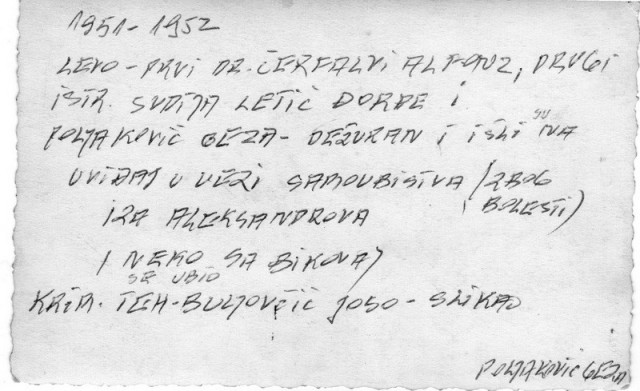 1951-1952
LEVO - PRVI DR. ČERFALVI ALFONZ, DRUGI
ISTR. SUDIJA LETIĆ ĐORĐE I
POLJAKOVIĆ GEZA - DEŽURAN I IŠLI SU NA
UVIĐAJ U VEZI SAMOUBISTVA (ZBOG
BOLESTI)
IZA ALEKSANDROVA
(NEKO SA BIKOVA)
SE UBIO
KRIM. TEH - BULJOVČIĆ JOSO - SLIKAO
POLJAKOVIĆ GEZA